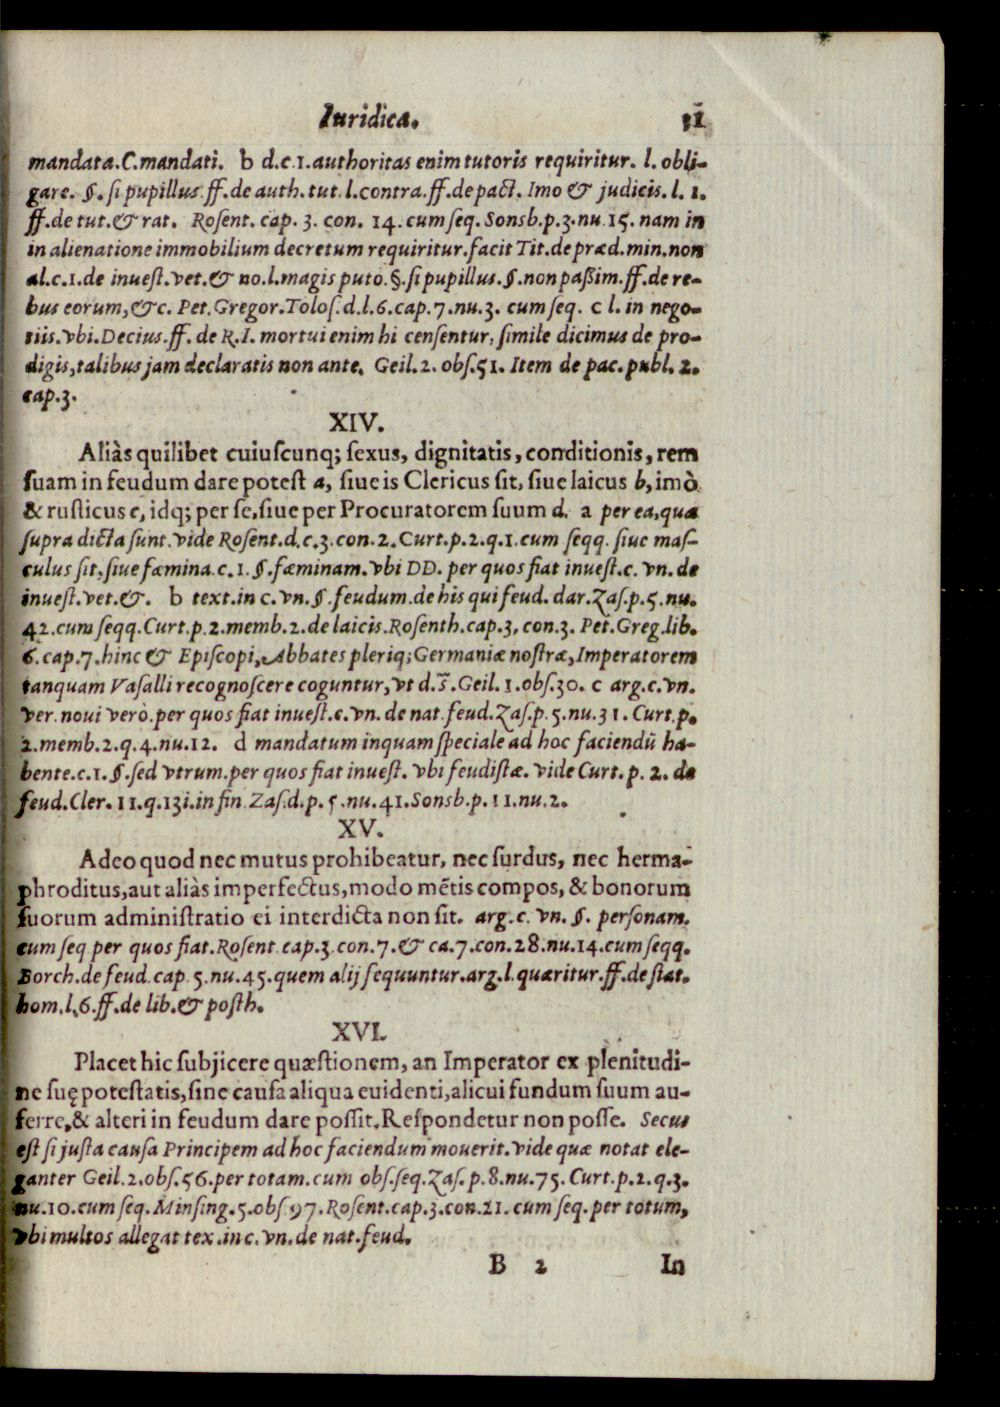 Iuridica. 11
mandata.C.mandati. b d.c.1.authoritas enim tutoris requiritur. l. obli-
gare. §. si pupillus.ff.de auth.tut.l.contra.ff.de pact. Imo & judicis.l. 1.
ff.de tut.& rat. Rosent. cap. 3. con. 14. cum seq. Sonsb.p.3.nu.15. nam in
in alienatione immobilium decretum requiritur.facit Tit.de præd.min.non
al.c.1.de inuest.vet.& no.l.magis puto.§.si pupillus.§.non paßim.ff.de re-
bus eorum,&c. Pet.Gregor.Tolos.d.l.6.cap.7.nu.3. cum seq. c l. in nego-
tiis.vbi.Decius.ff. de R.I. mortui enim hi censentur, simile dicimus de pro-
digis,talibus jam declaratis non ante. Geil.2. obs.51. Item de pac.publ. 2.
cap.3.
XIV.
Aliàs quilibet cuiuscunq; sexus, dignitatis, conditionis, rem
suam in feudum dare potest a, siue is Clericus sit, siue laicus b, imò
& rusticus c, idq; per se, siue per Procuratorem suum d. a per ea, quæ
supra dicta sunt. vide Rosent.d.c.3.con.2.Curt.p.2.q.1.cum seqq. siue mas-
culus sit, siue fæmina.c.1.§.fæminam.vbi DD. per quos fiat inuest.c. vn. de
inuest.vet.&. b text.in c.vn.§.feudum.de his qui feud. dar.Zas.p.5.nu.
42.cum seqq.Curt.p.2.memb.2.de laicis.Rosenth.cap.3.con.3. Pet.Greg.lib.
6.cap.7.hinc & Episcopi, Abbates pleriq; Germaniæ nostræ, Imperatorem
tanquam Vasalli recognoscere coguntur, vt d.s̄.Geil.1.obs.30. c arg.c.vn.
ver. noui verò.per quos fiat inuest.c.vn. de nat.feud.Zas.p.5.nu.31.Curt.p.
2.memb.2.q.4.nu.12. d mandatum inquam speciale ad hoc faciendū ha-
bente.c.1.§.sed vtrum.per quos fiat inuest. vbi feudistæ. vide Curt.p. 2. de
feud.Cler.11.q.13i.in fin.Zas.d.p.5.nu.41.Sonsb.p.11.nu.2.
XV.
Adeo quod nec mutus prohibeatur, nec surdus, nec herma-
phroditus, aut aliàs imperfectus, modo mētis compos, & bonorum
suorum administratio ei interdicta non sit. arg.c. vn. §. personam.
cum seq per quos fiat.Rosent.cap.3.con.7.& ca.7.con.28.nu.14.cum seqq.
Borch.de feud.cap.5.nu.45.quem alij sequuntur.arg.l.quæritur.ff.de stat.
hom.l.6.ff.de lib.& posth.
XVI.
Placet hic subjicere quæstionem, an Imperator ex plenitudi-
ne suę potestatis, sine causa aliqua euidenti, alicui fundum suum au-
ferre, & alteri in feudum dare possit. Respondetur non posse. Secus
est si justa causa Principem ad hoc faciendum mouerit. vide quæ notat ele-
ganter Geil.2.obs.56.per totam.cum obs.seq.Zas.p.8.nu.75.Curt.p.2.q.3.
nu.10.cum seq.Minsing.5.obs 97.Rosent.cap.3.con.21.cum seq.per totum,
vbi multos allegat tex.in c.vn.de nat.feud.
B 2 In